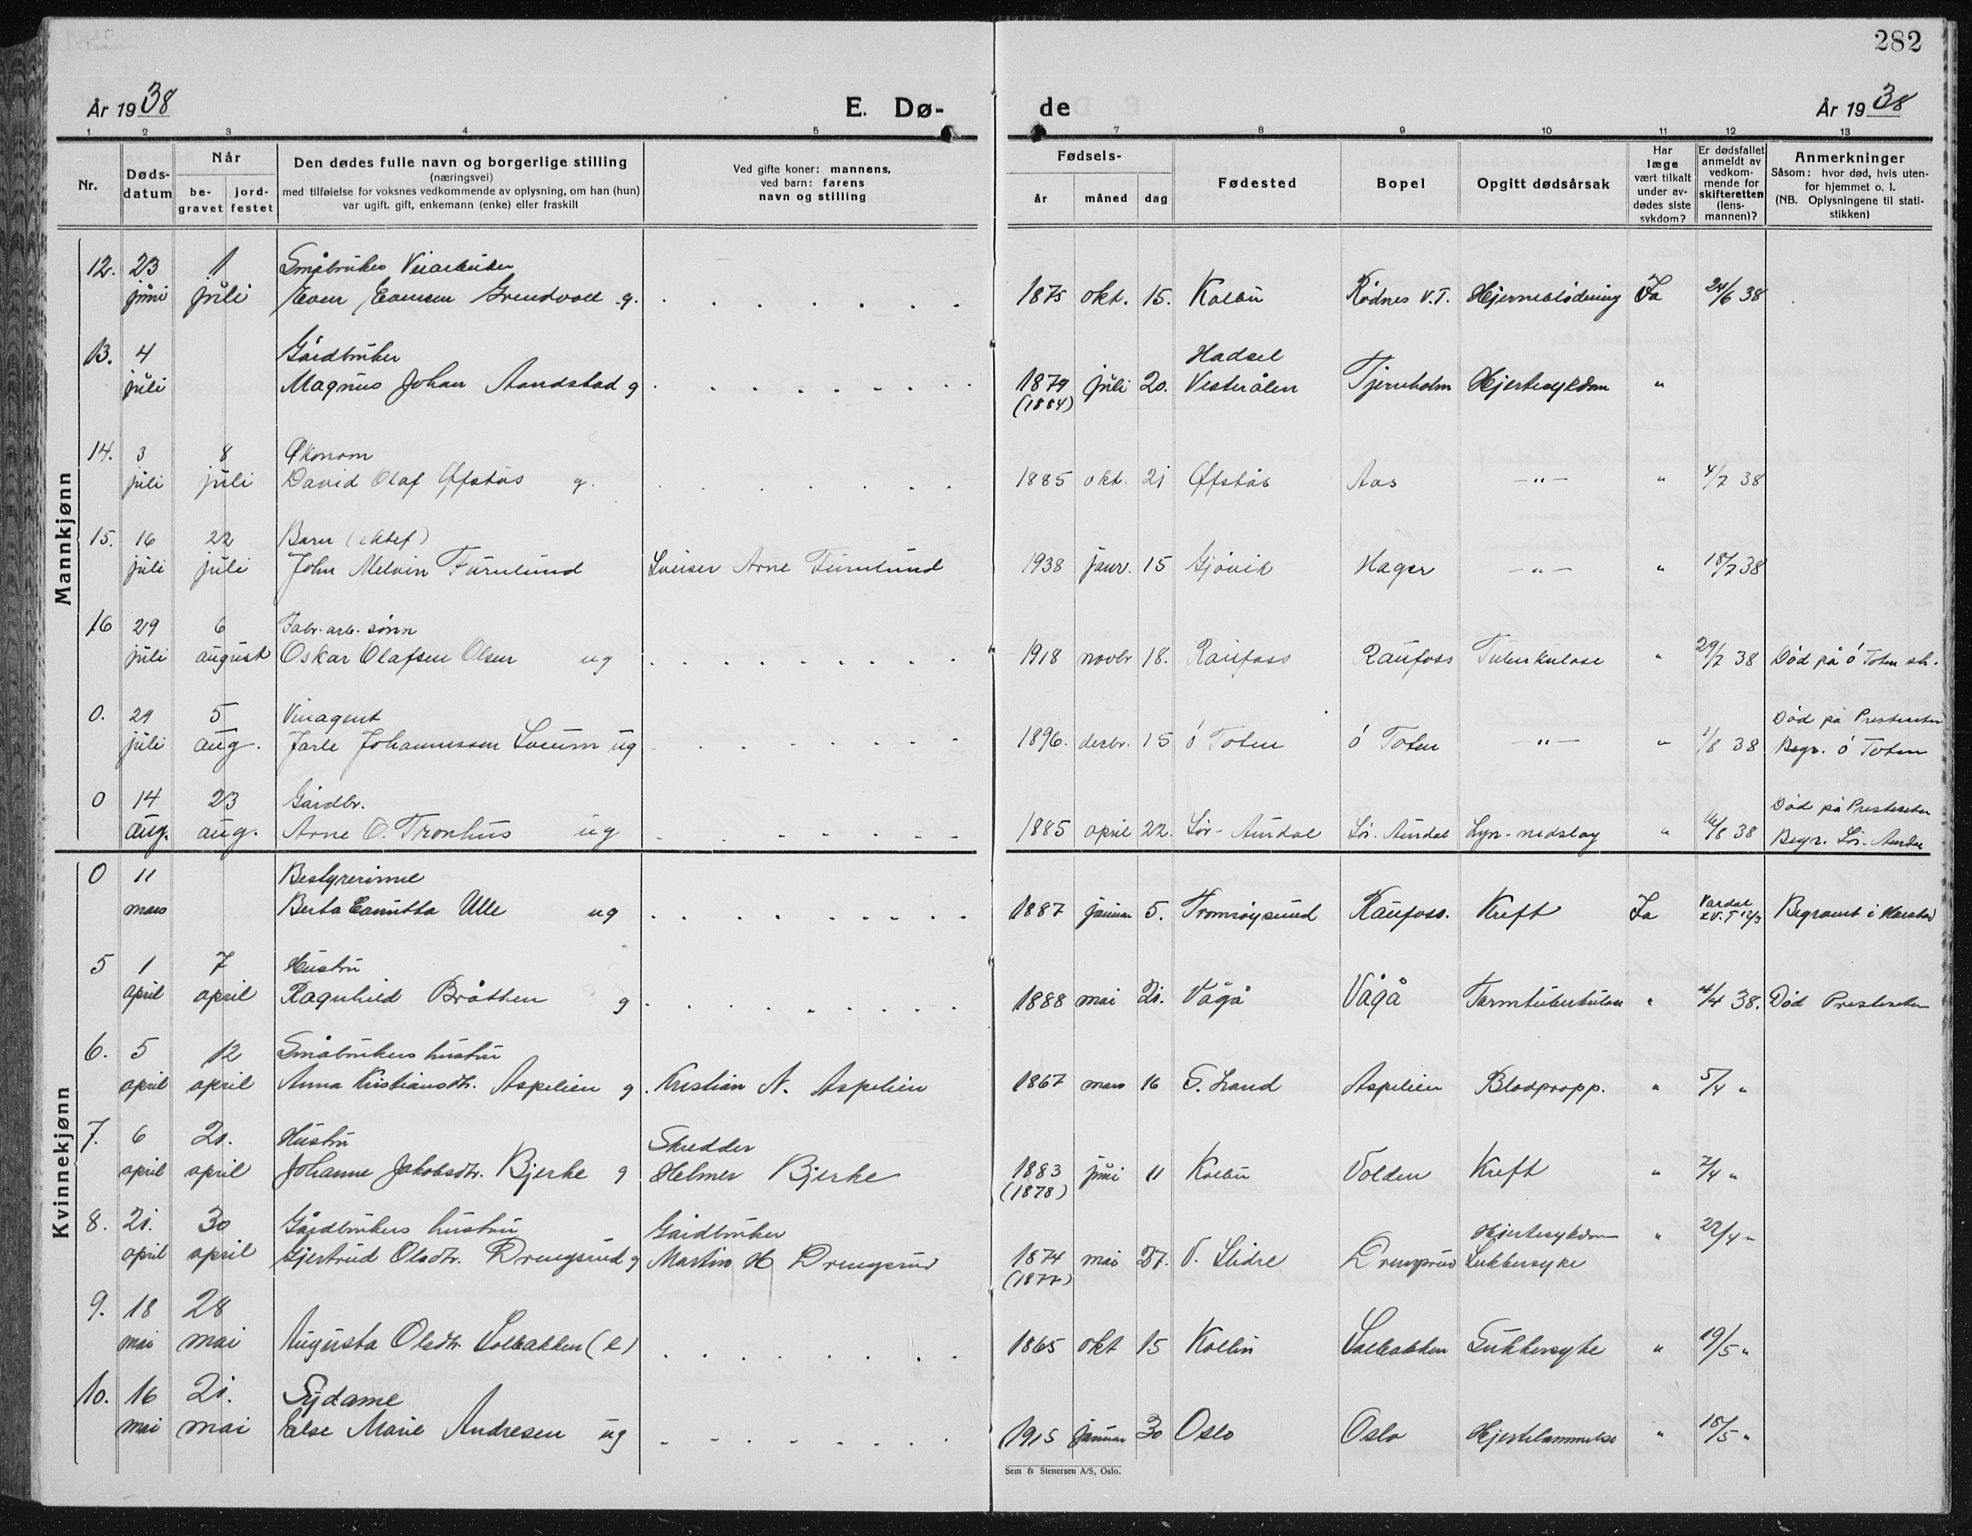 282
År 1938 E. Dø- de År 1938
1 2 3 4 5 7 8 9 10 11 12 13
Nr. Døds-datum Når be-gravet jord-festet Den dødes fulle navn og borgerlige stilling (næringsvei) med tilføielse for voksnes vedkommende av oplysning, om han (hun) var ugift, gift, enkemann (enke) eller fraskilt Ved gifte koner: mannens, ved barn: farens navn og stilling Fødsels- år måned dag Fødested Bopel Opgitt dødsårsak Har læge vært tilkalt under av-dødes siste sykdom? Er dødsfallet anmeldt av vedkom-mende for skifteretten (lens-mannen)? Anmerkninger Såsom: hvor død, hvis uten-for hjemmet o. l. (NB. Oplysningene til stati-stikken)
Mannkjønn
12. 23 1 Småbruker Veiarbeider
juni juli Even Evensen Grendvoll g. 1875 okt. 15. Kolbu Rødnes V.T. Hjerneblødning Ja 24/6 38
13. 4 Gårdbruker Hadsel
juli Magnus Johan Sandstad g 1879 juli 20. Vesterålen Tjernholm Hjertesykdom "
(1884)
14. 3 8 Økonom
juli juli David Olaf Øfstås g. 1885 okt. 21 Øfstås Aas —"— " 4/7 38
15. 16 22 Barn (ektef)
juli juli John Melvin Furulund Sveiser Arne Furulund 1938 janr. 15 Gjøvik Hager —"— " 18/7 38
16 29 6 Fabr. arb. sønn
juli august Oskar Olafsen Olsen ug 1918 novbr 18. Raufoss Raufoss Tuberkulose " 29/7 38 Død på Ø Toten sh.
0. 24 5 Vinagent Død på Presteseter
juli aug. Jarle Johannessen Sveum ug 1896. desbr. 15 Ø Toten Ø Toten —"— " 1/8 38 Begr. Ø Toten
0 14 23 Gårdbr. Død på Presteseter
aug. aug. Arne O. Tronhus ug 1885 april 22. Sør-Aurdal Sør-Aurdal Lyn-nedslag " 16/8 38 Begr. Sør-Aurdal
Kvinnekjønn
0 11 Bestyrerinne
mars Berta Ulle ug 1887 januar 5. Tromsøysund Raufoss. Kreft Ja Vardal V.T 12/3 Begravet i Harstad
5 1 7 Hustru
april april Ragnhild Bråtten g 1888 mai 21. Vågå Vågå Tarmtuberkulose " 4/4 38. Død Presteseter
6. 5 12 Småbrukers hustru
april april Anna Kristiansdtr. Aspelien g. Kristian N. Aspelien 1867 mars 16 S. Land Aspelien Blodpropp. " 5/4 "
7. 6 21. Hustru Skredder
april april Johanne Jakobsdtr. Bjerke g Helmer Bjerke 1883 juni 11 Kolbu Volden Kreft " 7/4 "
(1878)
8. 21. 30 Gårdbrukers hustru Gårdbruker Hjertesykdom " 22/4 "
april april Gjertrud Olsdtr. Drengsrud g Martin H Drengsrud 1874 mai 27. V. Slidre Drengsrud Sukkersyke
(1877)
9. 18 28
mai mai Augusta Olsdtr. Solbakken (e) 1865 okt 15 Kolbu Solbakken Sukkersyke " 19/5 "
10. 16 21. Sydame
mai mai Else Marie Andresen ug 1915 januar 30 Oslo Oslo Hjertelammelse " 18/5 "
Sem & Stenersen A/S, Oslo.